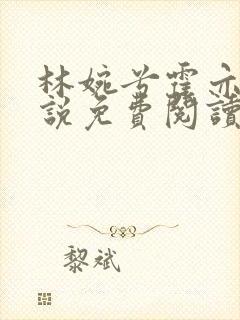 林婉兮霍亦
說免費閱讀
黎斌